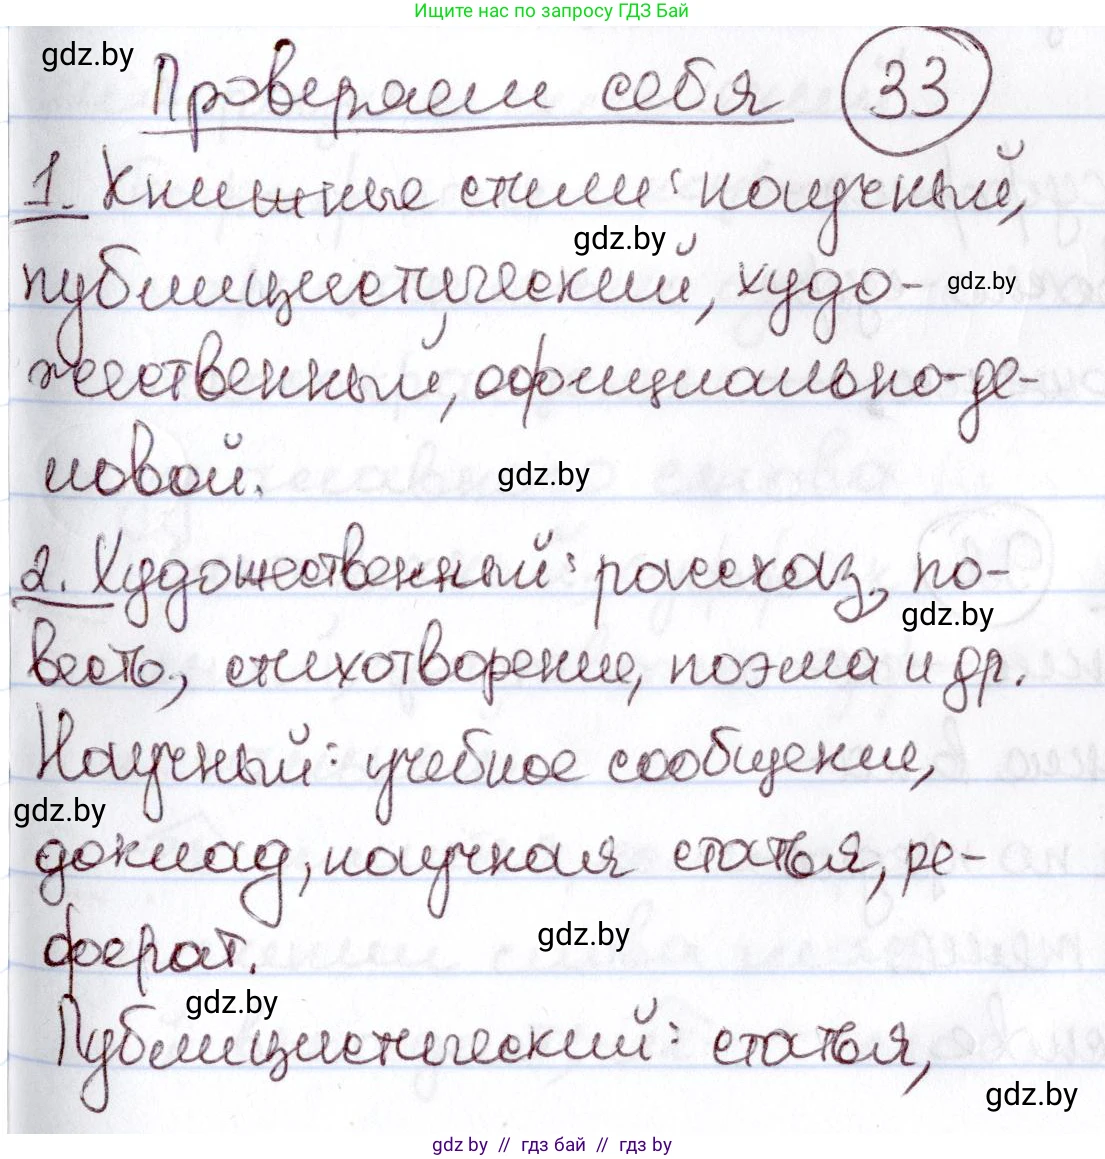 Ищите нас по запросу ГДЗ Бай
gdz.by
Проверяем себя 33
1. Книжные стили: научный,
gdz.by
публицистический, худо-
gdz.by
жественный, официально-де-
ловой.
gdz.by
2. Художественный: рассказ, по-
gdz.by
весть, стихотворение, поэма и др.
Научный: учебное сообщение,
gdz.by
доклад, научная статья, ре-
ферат.
gdz.by
gdz.by
Публицистический: статья,
gdz.by
gdz.by // гдз бай // гдз by